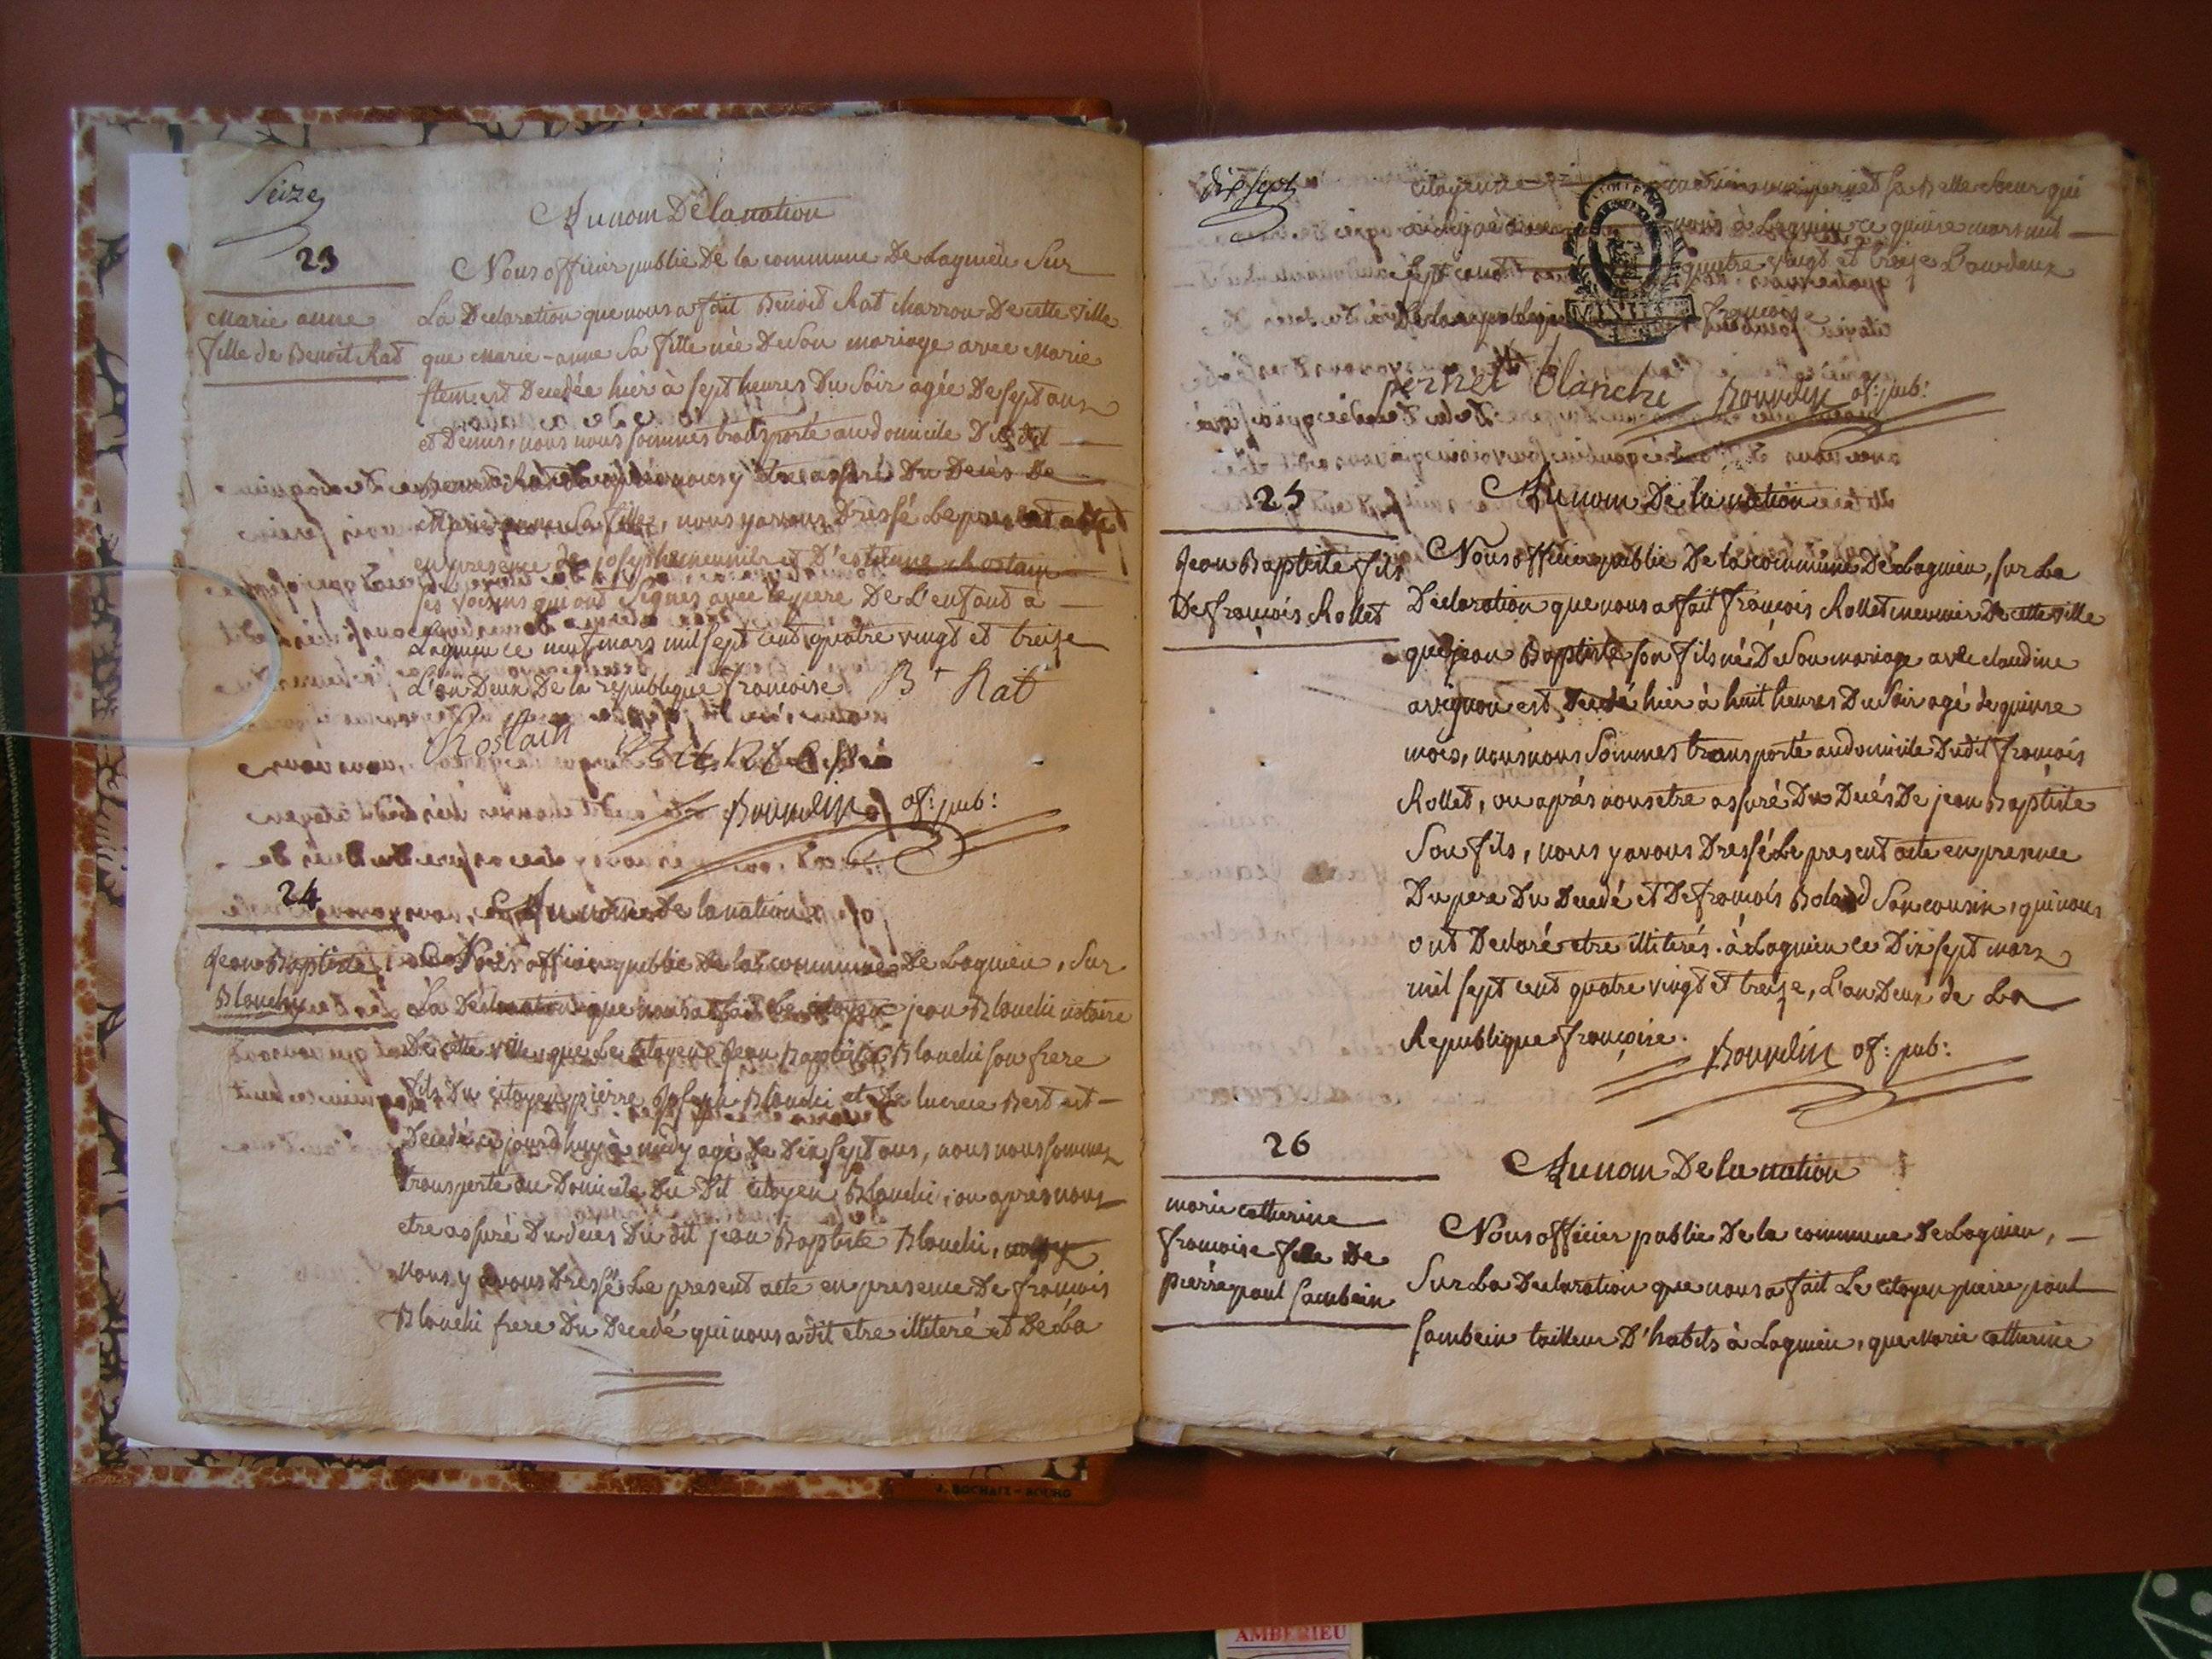 Seize
Au nom De la nation
23
Nous officier public De la commune De Lagnieu Sur
Marie anne
fille de Benoit Rat
La Declaration que nous a fait Benoit Rat charron De cette ville
que Marie-anne Sa fille née De Son mariage avec Marie
est Decedée hier à Sept heures Du Soir agée De Sept ans
et Demis, nous nous Sommes transporté au domicile Dudit
Benoit Rat nous y etre assuré Du Deces De
Marie anne Sa fille, nous y avons Dressé Le present acte
en presence de joseph meunier et D'estienne Rostain
ses voisins qui ont Signés avec le pere De L'enfant à
Lagnieu ce neuf mars mil Sept cent quatre vingt et treize
L'an Deux De la republique francoise
Bt Rat
Rostain
Bourdin of: pub:
24
Au nom De la nation
Jean Baptiste
Blanchy
Nous officier public De la commune De Lagnieu, Sur
La Declaration que nous a fait Le citoyen jean Blanchi notaire
De cette ville que Le citoyen Jean Baptiste Blanchi son frere
fils Du citoyen pierre Joseph Blanchi et De lucrece Bert est
Decedé ce jourd'huy à midy agé De Dix Sept ans, nous nous Sommes
transporté au Domicile Du Dit citoyen Blanchi, ou apres nous
etre assuré Du deces Du dit jean Baptiste Blanchi,
nous y avons Dressé Le present acte en presence De francois
Blanchi frere Du Decedé qui nous a dit etre illiteré et De La
dix sept
citoyenne pernet sa Belle Soeur qui
a signé avec nous à Lagnieu ce quinse mars mil
Sept cent quatre vingt et treize L'an deux
De la republique francoise
pernet blanchi Bourdin of: pub:
25
Au nom De la nation
Jean Baptiste fils
De francois Rollet
Nous officier public De la commune De Lagnieu, sur La
Declaration que nous a fait francois Rollet meunier De cette ville
que jean Baptiste son fils né De Son mariage avec claudine
avignon est Decedé hier à huit heures Du Soir agé de quinse
mois, nous nous Sommes transporté au domicile Dudit francois
Rollet, ou après nous etre assuré Du Decés De jean Baptiste
Son fils, nous y avons Dressé Le present acte en presence
Du pere Du Decedé et De francois Boland Son cousin, qui nous
ont Declaré etre illiterés. à Lagnieu ce Dix sept mars
mil sept cent quatre vingt et treize, L'an Deux de La
Republique francoise.
Bourdin of: pub:
26
Au nom De la nation
marie catherine
francoise fille De
pierre paul Sambein
Nous officier public De la commune De Lagnieu,
Sur La Declaration que nous a fait Le citoyen pierre paul
Sambein tailleur D'habits à Lagnieu, que Marie catherine
J. ROCHAIX - BOURG
AMBERIEU